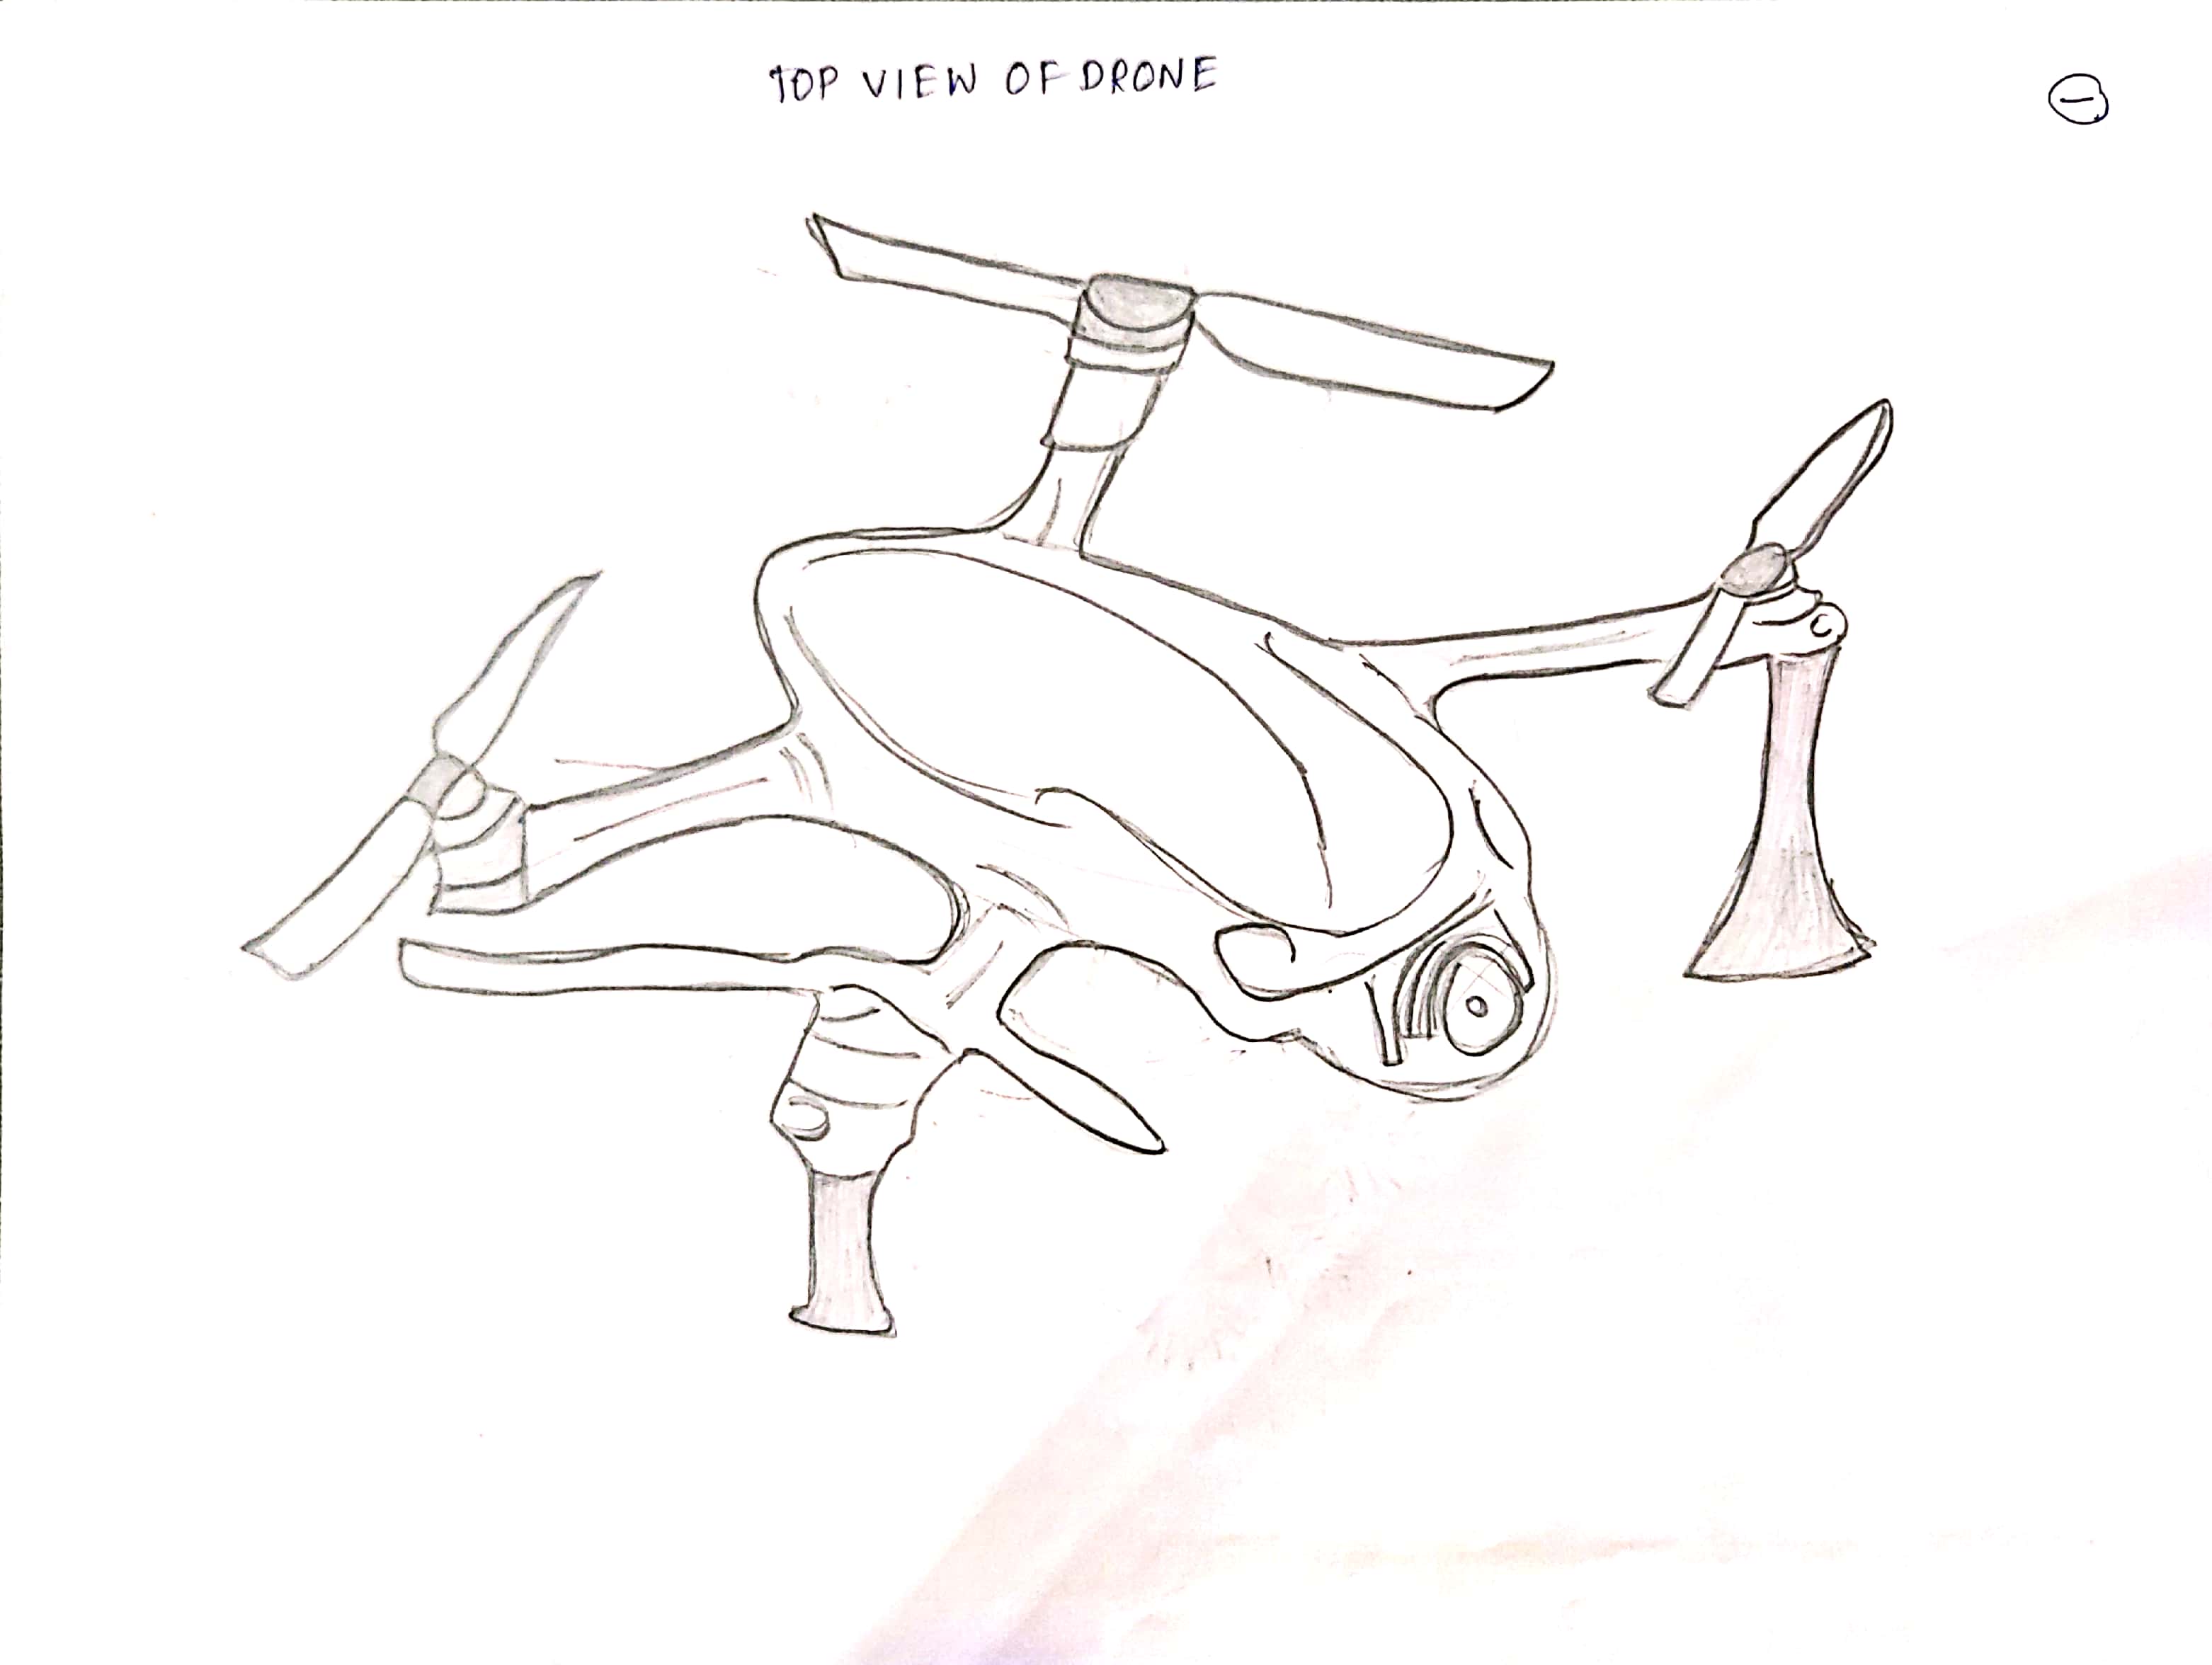 TOP VIEW OF DRONE